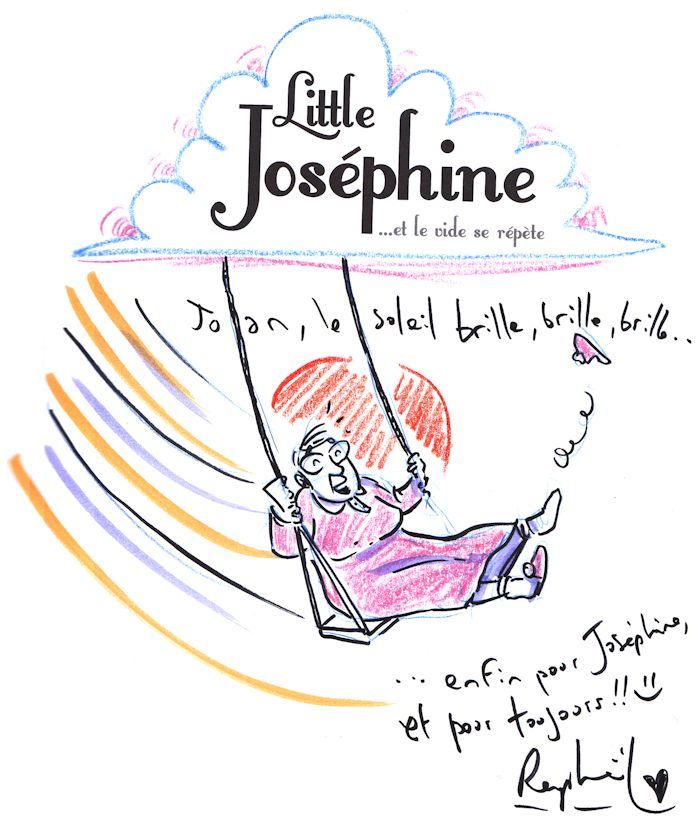 Little
Joséphine
...et le vide se répète
Johan, le soleil brille, brille, brille...
... enfin pour Joséphine,
et pour toujours!! :)
Raphaël